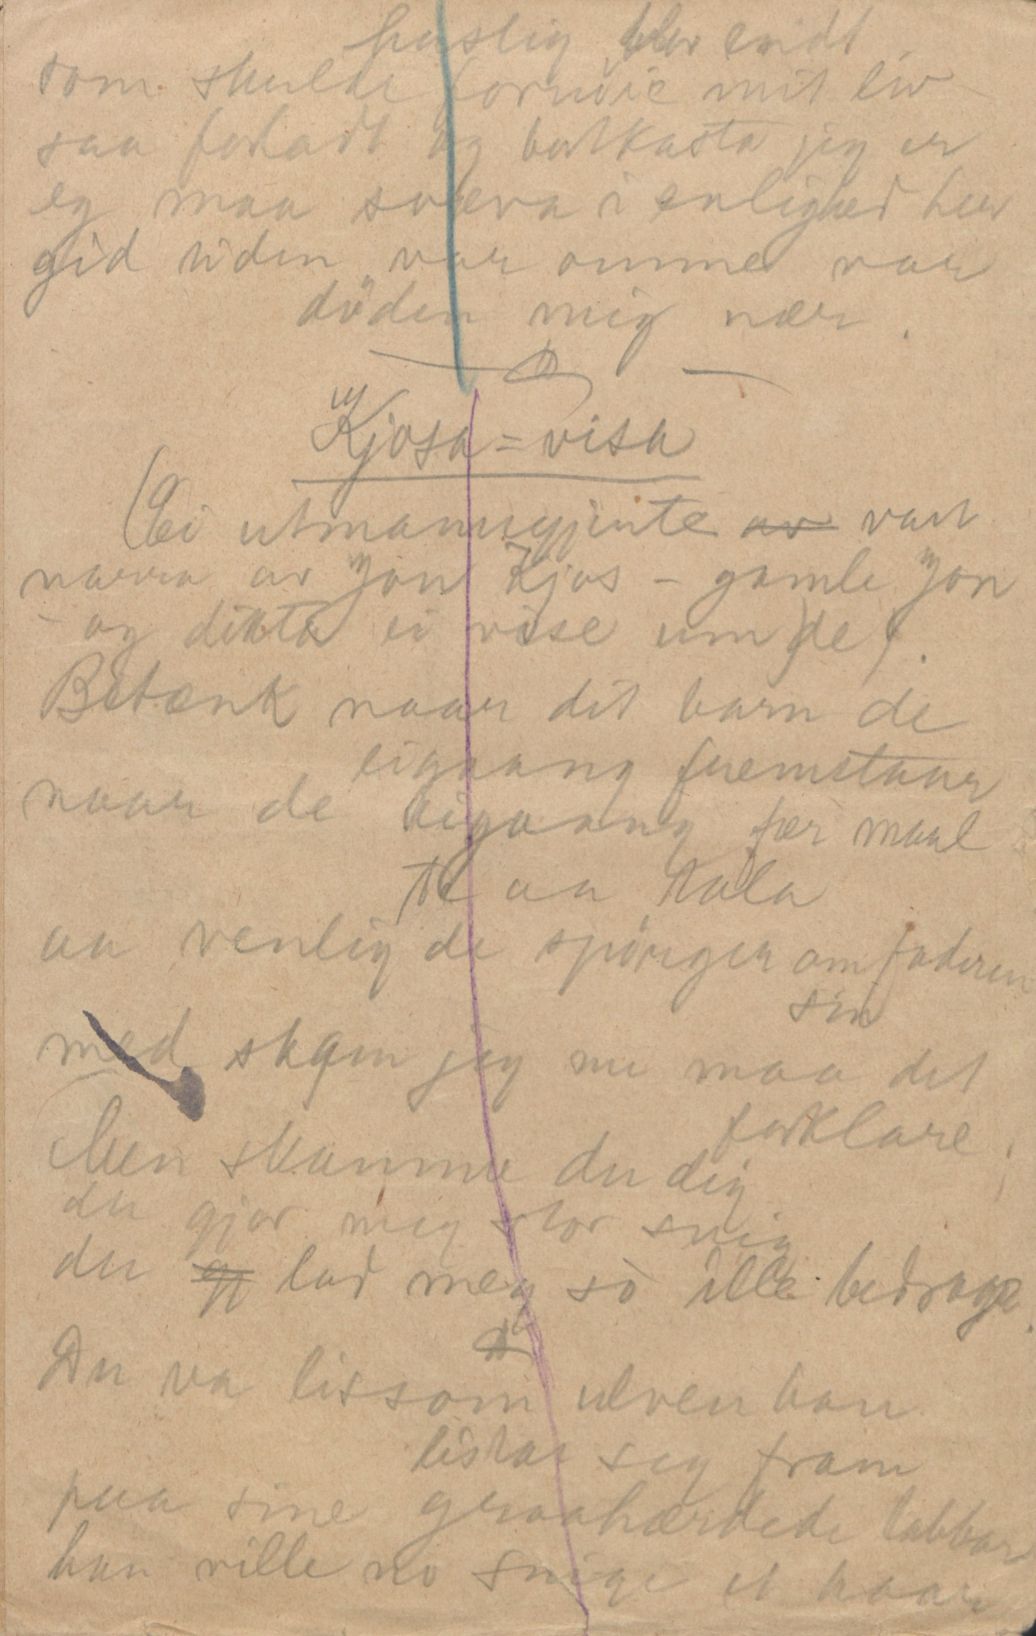 hastig blev endt.
som skulde forudie mit liv
saa forladt og bortkasta jeg er
eg maa sveva i enlighed her
gid tiden var omme var
döden mig nær.
Kjosa=visa
(Ei utmannsgjente av vart
narra av Jon Kjos - gamle Jon
- og dikta ei vise um de).
Betænk naar dit barn de
eigaang fremstaar
naar de eigaang fær maal
te aa tala
aa venlig de spörger om faderen
sin
med skam jeg nu maa det
forklare.
Men skamme du dig
du gjor meg stor svig
du lod meg so ille bedrage.
Du va lissom ulven han
listar seg fram
paa sine graahærdede labbar
han ville no snige et haar